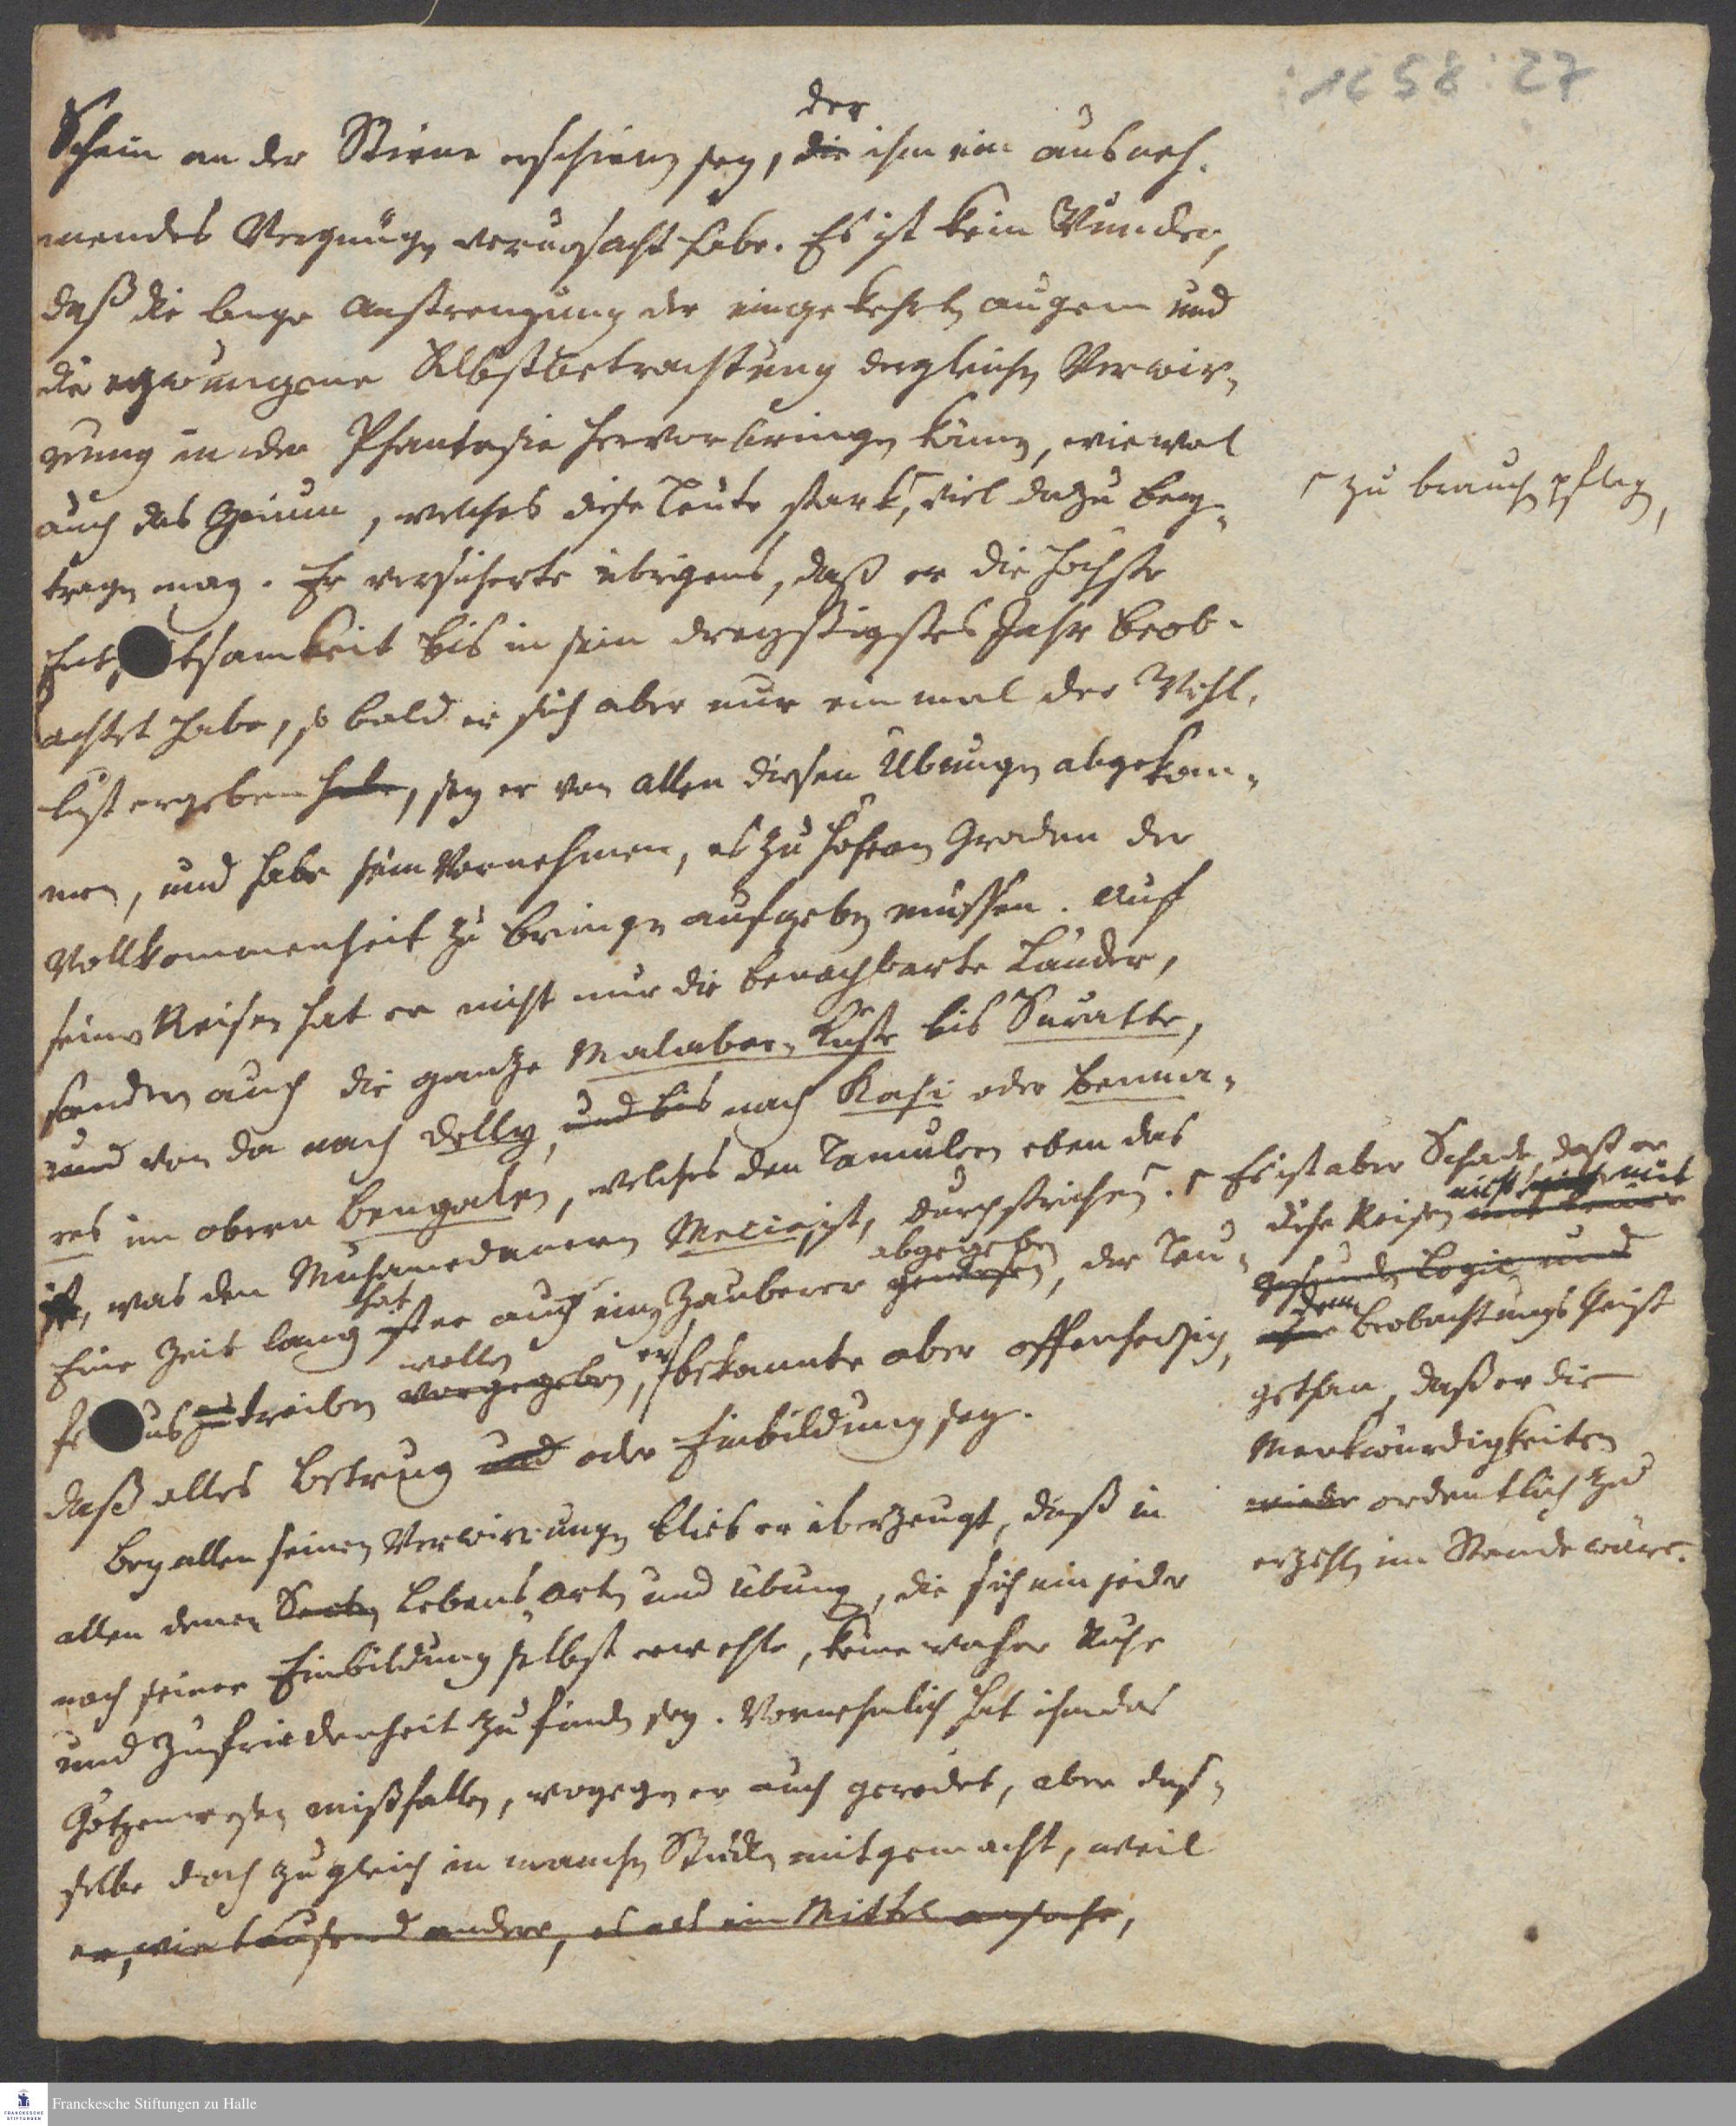 :1658:27
der
Schein an der Stirne erschienen sey, die ihm ein ausneh-
mendes Vergnügen verursacht habe. Es ist kein Wunder,
daß die lange Anstrengung der eingekehrten augen und
die erzwungene Selbstbetrachtung dergleichen Verwir-
rung in der Phantasie hervorbringen kann, wiewol
auch das Opium, welches diese Leute stark, viel dazu bey-
zu brauchen pflegen,
tragen mag. Er versicherte übrigens, daß er die höchste
Ent tsamkeit bis in sein dreyßigstes Jahr beob-
achtet habe, so bald er sich aber nur einmal der Wohl-
lust ergeben habe, sey er von allen diesen Übungen abgekom-
men, und habe sein Vornehmen, es zu höhern Graden der
Vollkommenheit zu bringen aufgeben müssen. Auf
seinen Reisen hat er nicht nur die benachbarte Länder,
sondern auch die gantze Malabar-Küste bis Suratte,
und von da nach Delly, und bis nach Kasi oder Benna-
res im obern Bengalen, welches den Tamulern eben das
ist, was den Muhamedanern Mecca ist, durchstrichen.
Es ist aber Schade, daß er
diese Reisen nicht mit
gesunder Logic und
dem Beobachtungs Geist
gethan, daß er die
Merkwürdigkeiten
wieder ordentlich zu
erzehlen im Stande wäre.
hat abgegeben
Eine Zeit lang ist er auch einen Zauberer gewesen, der Teu-
wollen er
fe aus zu treiben vorgegeben, bekannte aber offenherzig,
daß alles Betrug und oder Einbildung sey.
Bey allen seinen Verwirrungen blieb er überzeugt, daß in
allen denen Secten Lebens-Arten und Übung, die sich ein jeder
nach seiner Einbildung selbst erwehlte, keine wahre Ruhe
und Zufriedenheit zu finden sey. Vornehmlich hat ihm das
Götzenwesen mißfallen, wogegen er auch geredet, aber das-
selbe doch zugleich in manchen Stücken mitgemacht, weil
er, wie tausend andere, es als ein Mittel ansahe,
Franckesche Stiftungen zu Halle